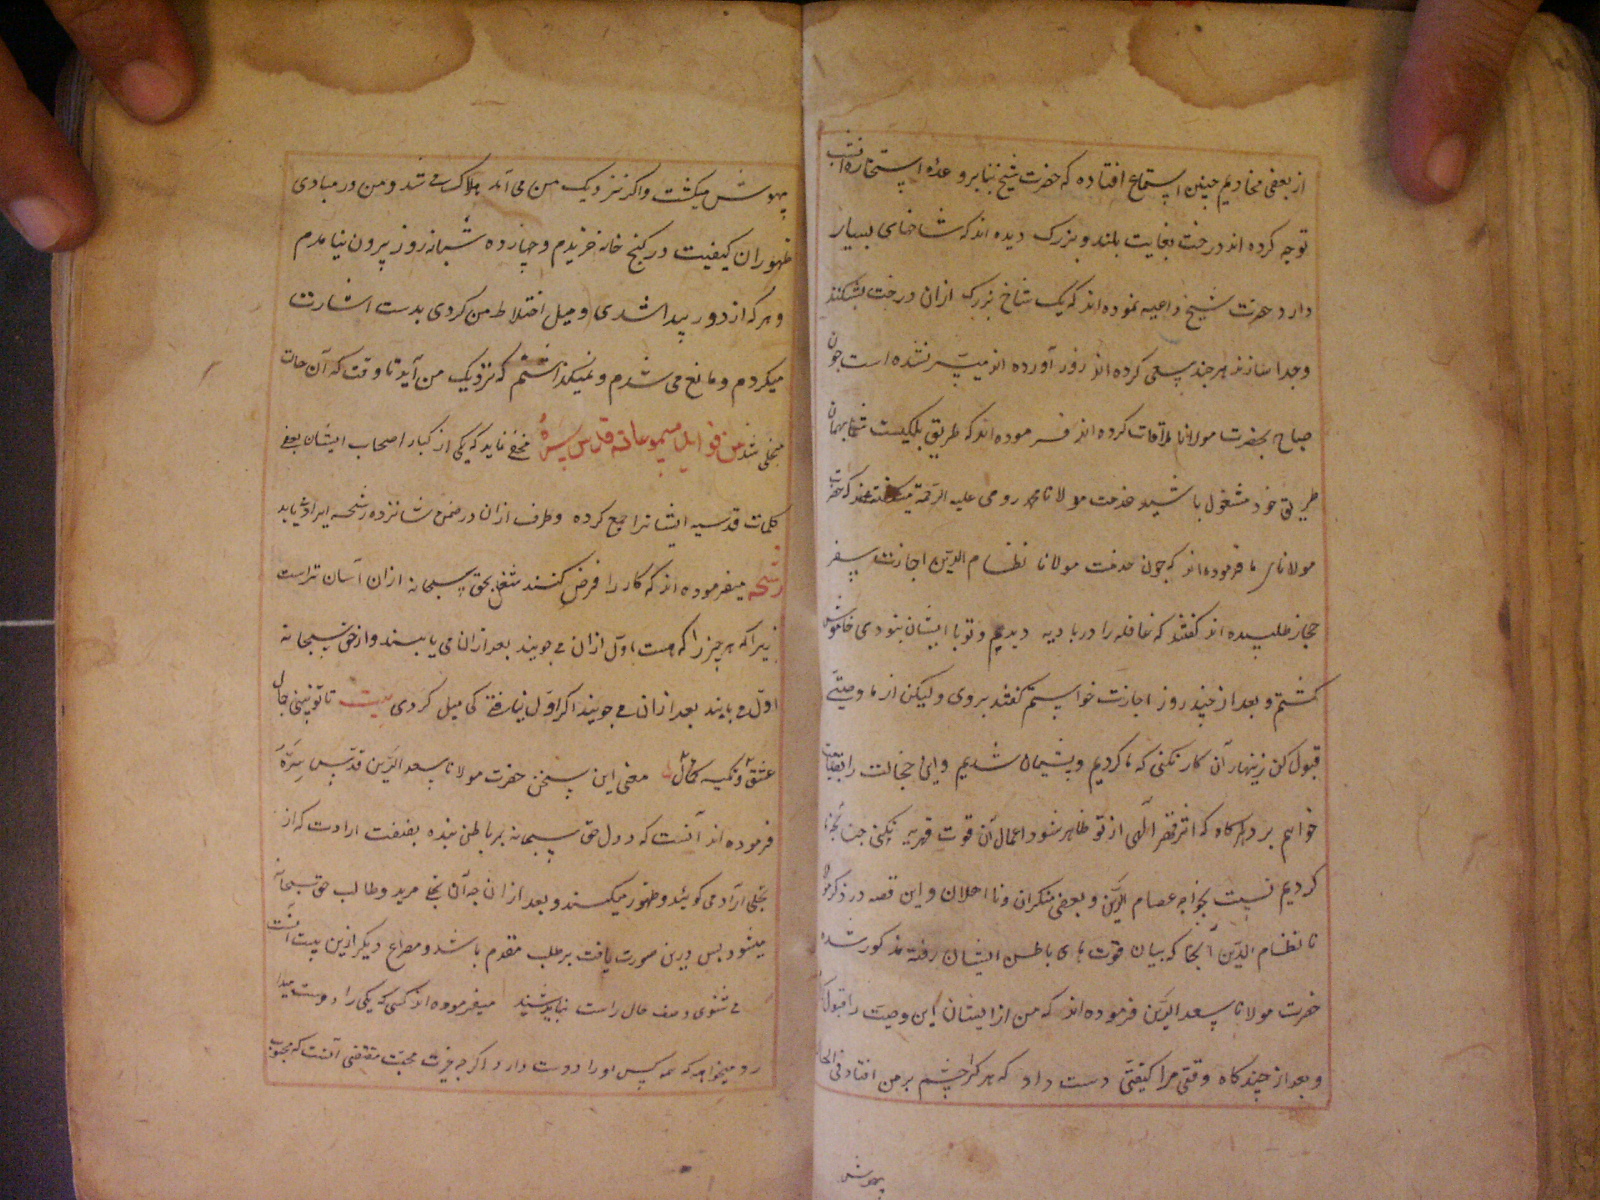 از بعضی مخادیم چنین استماع افتاده که حضرت شیخ بنابر وعده استخاره آنشب
توجه کرده اند درخت بغایت بلند و بزرگ دیده اند که شاخهای بسیار
دارد حضرت شیخ داعیه نموده اند که یک شاخ بزرک ازان درخت بشکنند
و جدا سازند هر چند سعی کرده اند زور آورده اند میسر نشده است چون
صباح بحضرت مولانا ملاقات کرده اند فرموده اند که طریق بلکیست شما بهمان
طریق خود مشغول باشید خدمت مولانا محمد رومی علیه الرحمة میکفتند که حضرت
مولانای ما فرموده اند که چون خدمت مولانا نظام الدین اجازت سفر
حجاز طلبیده اند کفتند که قافله را در بادیه دیدیم و تو با ایشان نبودی خاموش
کشتم و بعد از چند روز اجازت خواستم کفتند بروی ولیکن از ما وصیتی
قبول کن زینهار آن کار نکنی که ما کردیم و پشیمان شدیم و این خجالت را بقیامت
خواهیم برد هرکاه که اثر قهر الهی از تو ظاهر شود اعمال آن قوت قهریه نکنی چنانچه ما
کردیم نسبت بخواجه عصام الدین و بعضی منکران و نا اهلان و این قصه در ذکر مولا
نا نظام الدین آنجا که بیان قوت های باطن ایشان رفته مذکور شده
حضرت مولانا سعد الدین فرموده اند که من از ایشان این وصیت را قبول
و بعد از چند کاه وقتی مرا کیفیتی دست داد که هر کرا چشم بر من افتاد فی الحال
بیهوش
بیهوش میکشت و اکر نزدیک من می آمد هلاک می شد و من در مبادی
ظهور ان کیفیت در کنج خانه خزیدم و چهارده شبانه روز بیرون نیامدم
و هر که از دور پیدا شدی و میل اختلاط من کردی بدست اشارت
میکردم و مانع می شدم و نمیکذاشتم که نزدیک من آید تا وقت که آن حالت
منجلی شد من فواید مسموعاته قدس سره مخفی نماند که یکی از کبار اصحاب ایشان بعضی
کلمات قدسیه ایشانرا جمع کرده و طرف ازان در ضمن شانزده رشحه ایراد می یابد
رشحه میفرموده اند که کار را فرض کنند شغل بحق سبحانه ازان آسان تراست
زیرا که هر چیز را که هست اول ازان می جویند بعد ازان می یابند و از حق سبحانه
اول می یابند بعد ازان می جویند اکر اول نیافتی کی میل کردی بیت تا تو نبینی جمال
عشق نکیرد کمال معنی این سخن حضرت مولانا سعد الدین قدس سره
فرموده اند آنست که اول حق سبحانه بر باطن بنده بصفت ارادت که از
تجلی ارادی کویند و ظهور میکند و بعد ازان جه آن تجلی مرید و طالب حق سبحانه
میشود بس درین صورت یافت بر طلب مقدم باشد و مصراع دیکر ازین بیت آنست
می شنوی وصف حال راست نباید شنید میفرموده اند کسی که یکی را دوست میدا
رد میخواهد که همه کس او را دوست دارد اکرچه غیرت محبت مقتضی آنست که محبوب